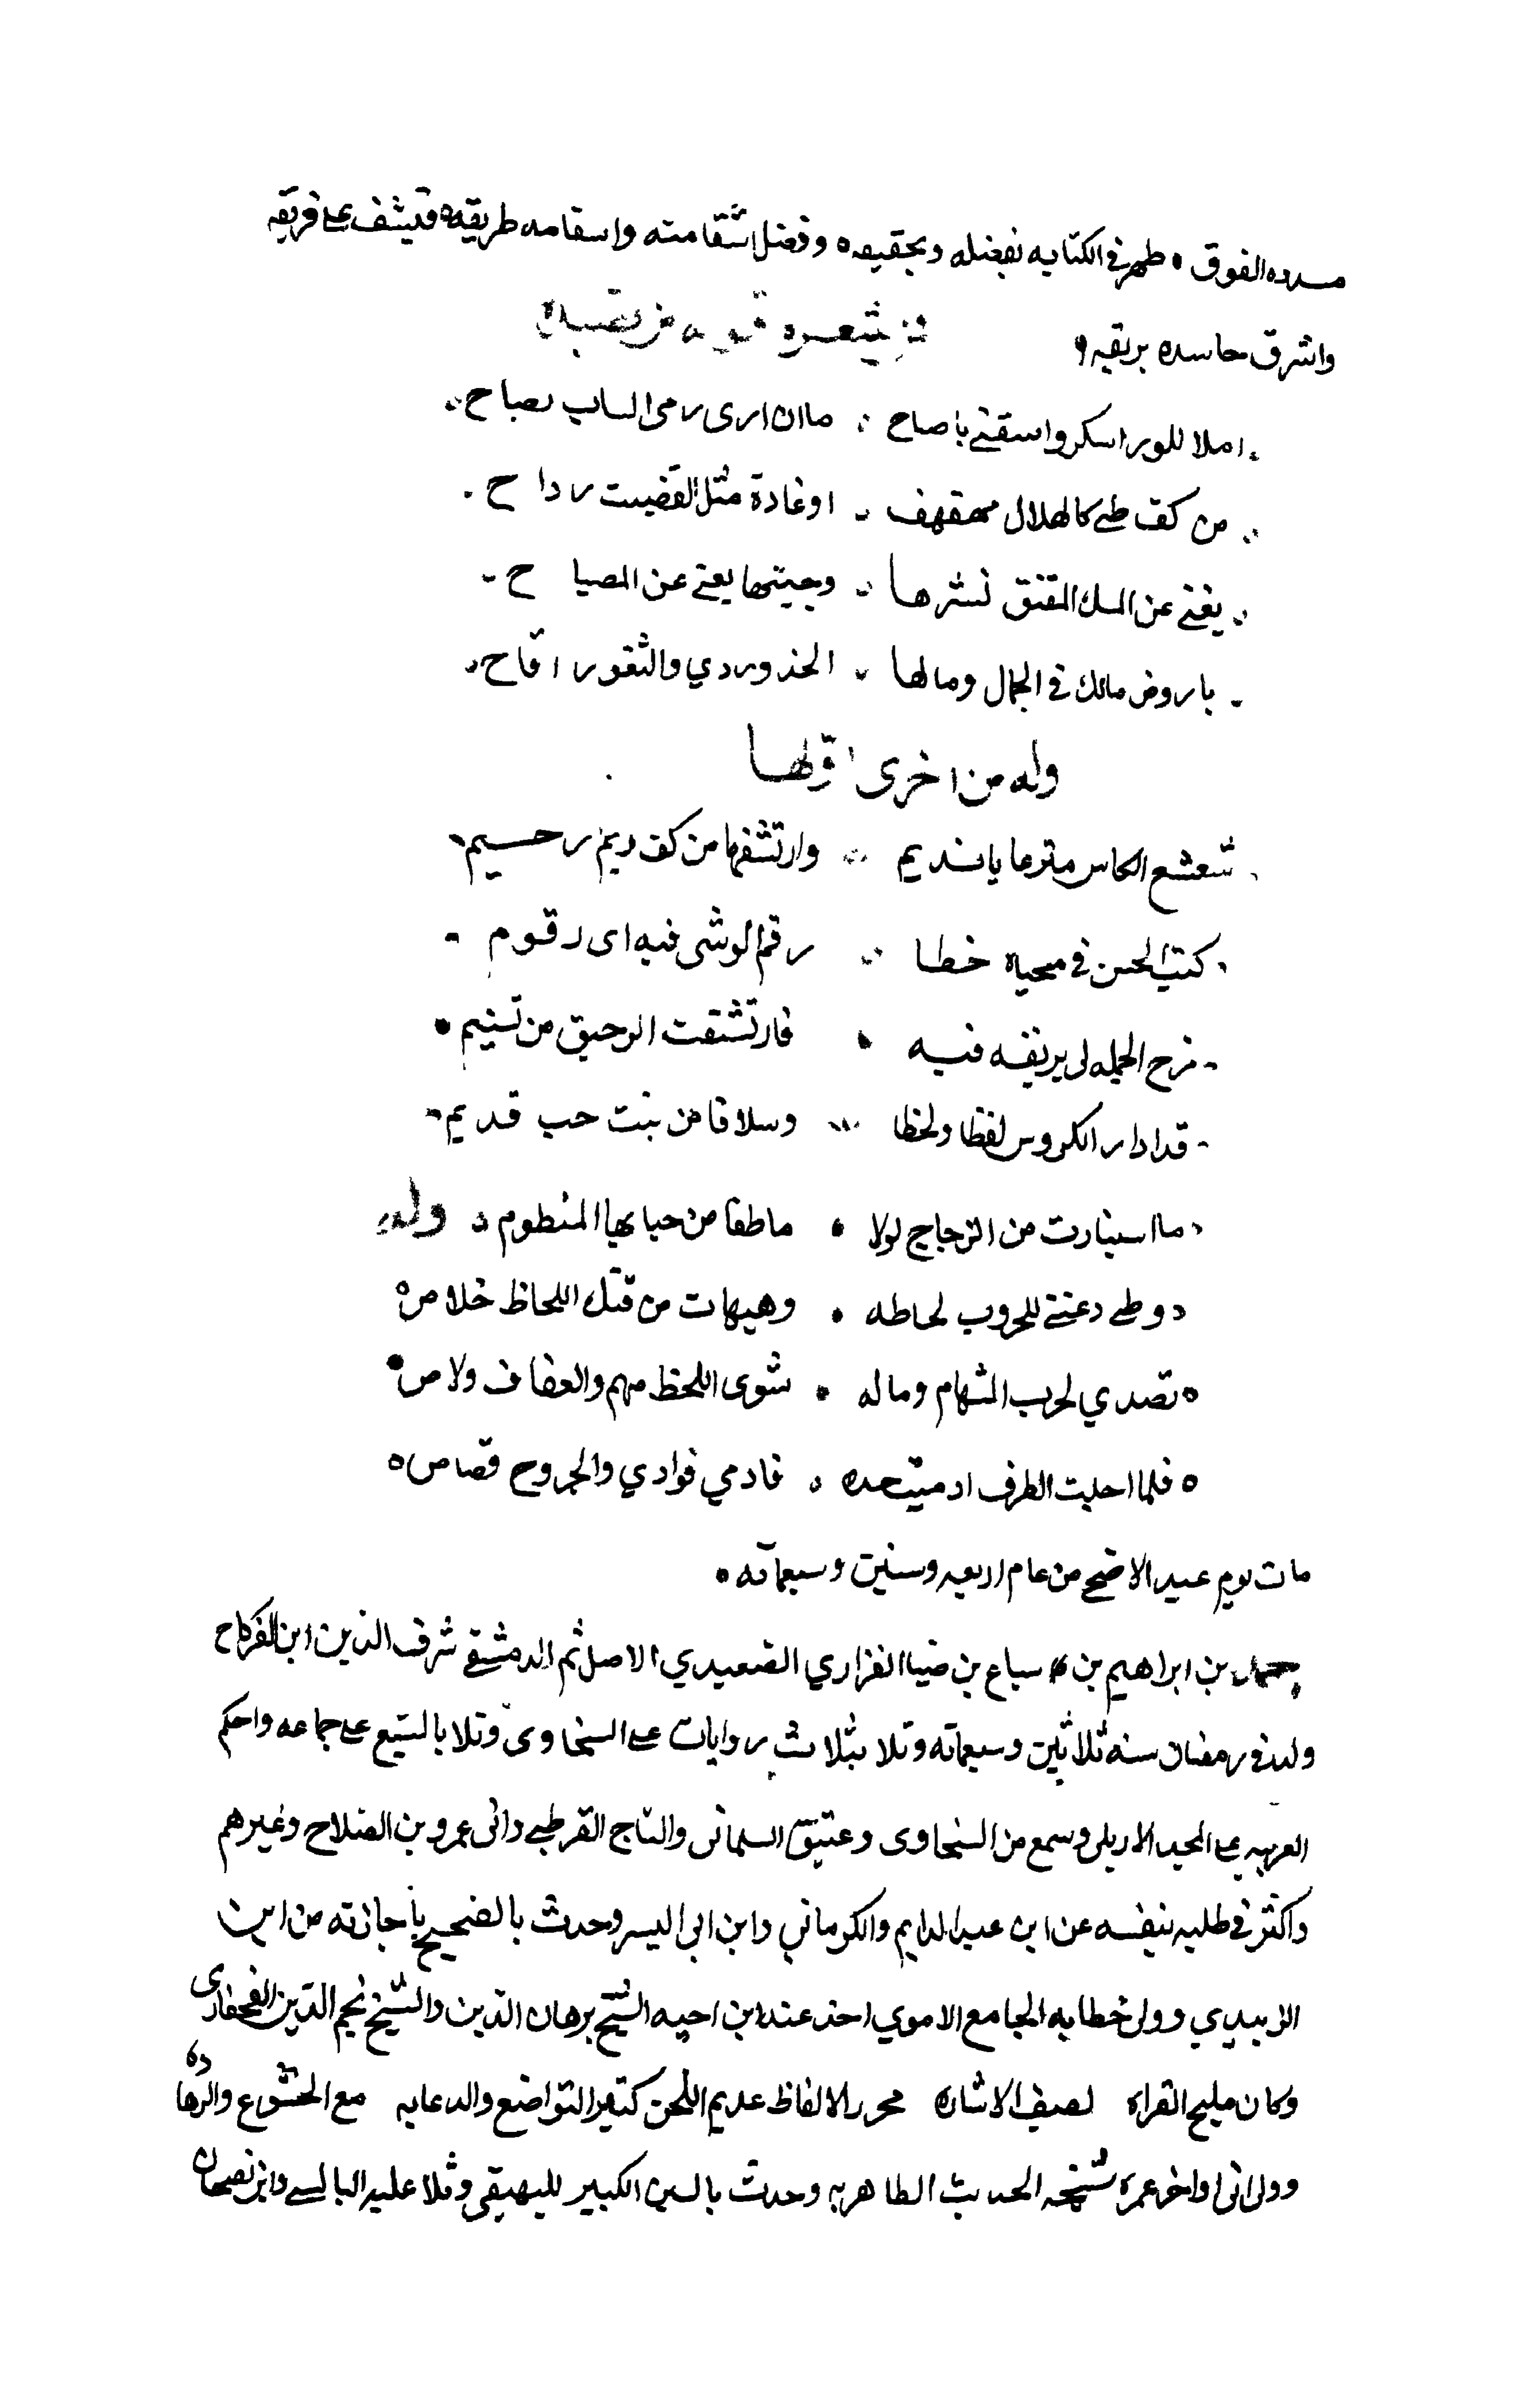 مسدده الفوق ٥ طهر في الكتابه بفضله وتحقيقه ٥ وفضل استقامته واستقامه طريقه ٥ فيشف على فريقه
واشرق حاسده بريقه ٥ من شعره قوله من قصيده
املا للور اسكر واسقني ياصاح ما ان ارى رمى الساب بصاح
من كف ظبي كالهلال مهفهف او غادة مثل القضيب رداح
يغني عن المسك المفتق نشرها وجبينها يغني عن المصباح
ياروض مالك في الجمال ومالها الخد وردي والثغور اقاح
وله من اخرى اولها
شعشع الكاس مترعا يانديم وارتشفها من كف ريم رحسيم
كتب الحسن في محياه خطا رقم الوشى فيه اى رقوم
مزج الجمله لى بريقه فيه فارتشفت الرحيق من تسنيم
قد ادار الكووس لفظا ولحظا وسلافا من بنت حب قديم
ما استنارت من الزجاج لولا ماطفا من حبابها المنظوم وله
وظبي دعتني للحروب لحاظه وهيهات من قتل اللحاظ خلاص
تصدي لحرب المشهام وماله شوى اللحظ سهم والعفاف ولاص
فلما احلت الطرف ادميت خده فادمي فوادي والجروح قصاص
مات يوم عيد الاضحى من عام اربعه وستين وسبعمائه
بن ابراهيم بن سباع بن ضيا الفزاري الصعيدي الاصل ثم الدمشقي شرف الدين ابن الفركاح
ولد في رمضان سنه ثلاثين وسبعمائه وتلا بثلاث روايات على السخاوى وتلا بالسبع على جماعه واحكم
العربيه على المجد الاربلى وسمع من السخاوى وعتيق السلماني والتاج القرطبي وابى عمرو بن الصلاح وغيرهم
واكثر في طلبه بنفسه عن ابن عبد الدايم والكرماني وابن ابى اليسر وحدث بالصحيح باجازته من ابن
الزبيدي وولى خطابه الجامع الاموي اخذ عنه ابن اخيه الشيخ برهان الدين والشيخ نجم الدين القحفازى
وكان مليح القراه لصيف الاشاره محرر الالفاظ عديم اللحن كثير التواضع والدعابه مع الخشوع والزهاده
وولى فى اواخر عمره مشيخه الحديث الظاهريه وحدث بالسنن الكبير للبيهقي وتلا عليه البالسي وابن بصحان